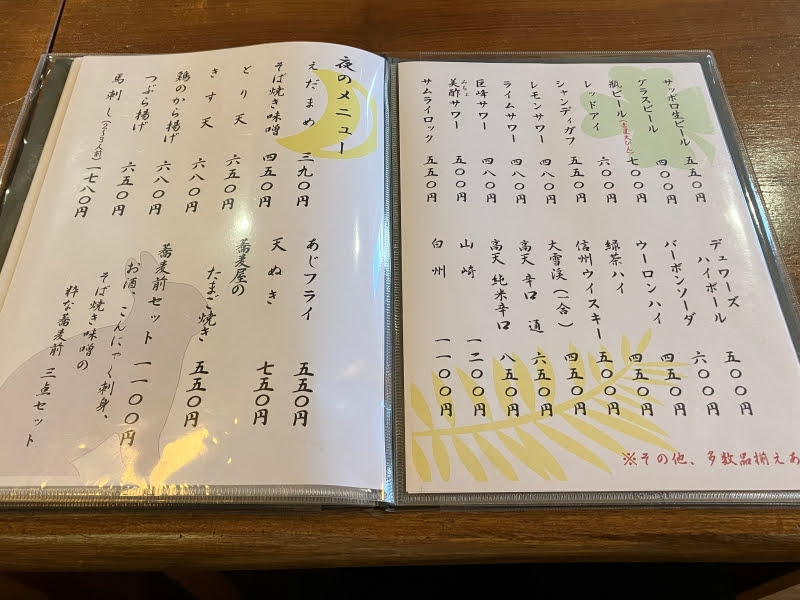 サッポロ生ビール 五五〇円
グラスビール 四〇〇円
瓶ビール 七〇〇円
レッドアイ 六〇〇円
シャンディガフ 五五〇円
レモンサワー 四八〇円
ライムサワー 四八〇円
巨峰サワー 四八〇円
みちょ
美酢サワー 五五〇円
サムライロック 五五〇円
デュワーズ
ハイボール 五〇〇円
バーボンソーダ 六〇〇円
ウーロンハイ 四五〇円
緑茶ハイ 四五〇円
信州ウイスキー 五〇〇円
大雪渓(一合) 四五〇円
高天 辛口 通 六五〇円
高天 純米辛口 八五〇円
山崎 一二〇〇円
白州 一一〇〇円
※その他、多数品揃えあ
夜のメニュー
えだまめ 三九〇円
そば焼き味噌 四五〇円
とり天 六五〇円
きす天 六八〇円
鶏のから揚げ 六八〇円
つぶら揚げ 六五〇円
馬刺し(2~3人前) 一七八〇円
あじフライ 五五〇円
天ぬき 七五〇円
蕎麦屋の
たまご焼き 五五〇円
蕎麦前セット 一一〇〇円
お酒、こんにゃく刺身、
そば焼き味噌の
粋な蕎麦前 三点セット